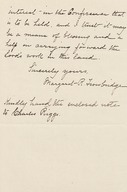 interest in the Conference that
is to be held, and I trust it may
be a means of blessing and a
help in carrying forward the
Lord's work in this land.
Sincerely yours,
Margaret R. Trowbridge
Kindly hand the enclosed note
to Charles Riggs.